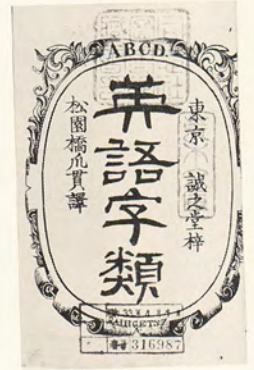 ABCD.
東京 誠之堂梓
英語字類
松園橋爪貫譯
316987